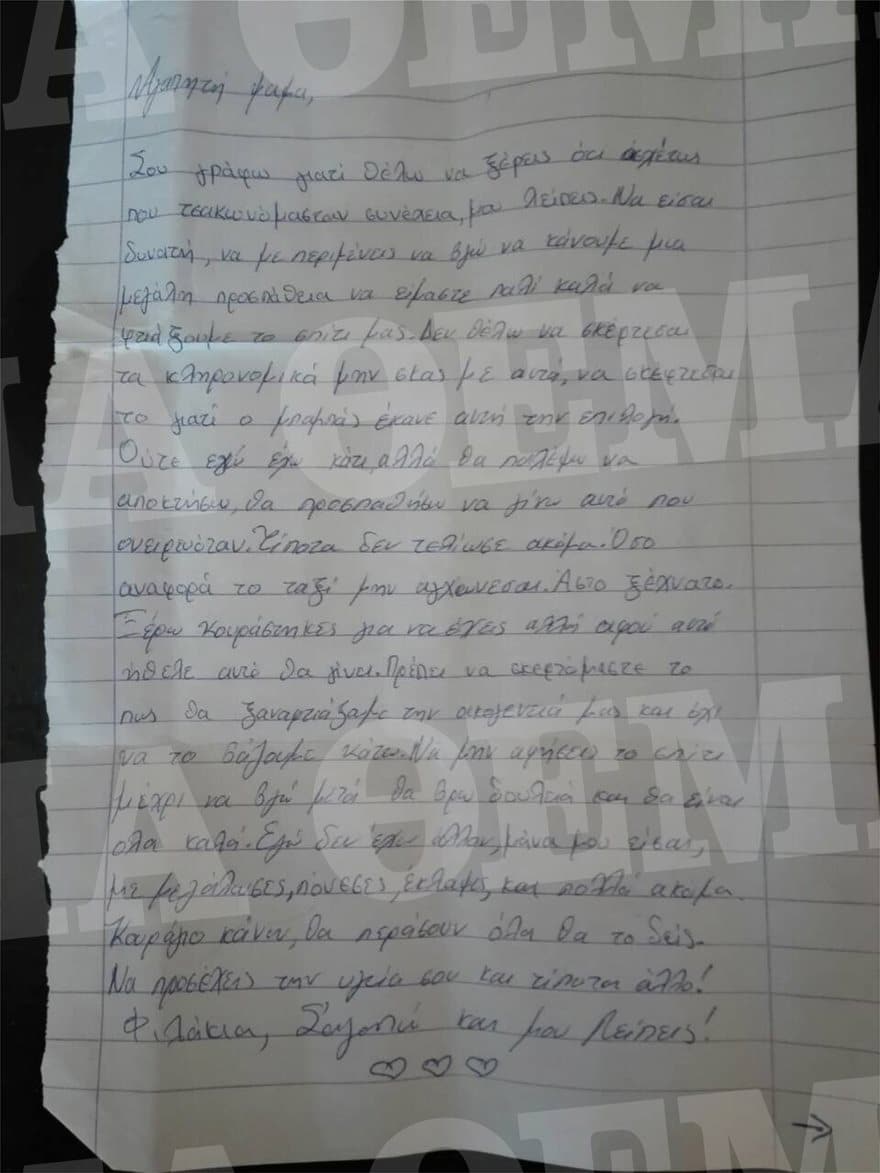 Αγαπητή μαμα,
Σου γράφω γιατί θέλω να ξέρεις ότι
που τσακωνόμασταν συνέχεια, μου λείπεις. Να είσαι
δυνατή, να με περιμένεις να βγώ να κάνουμε μια
μεγάλη προσπάθεια να είμαστε παλί καλά να
φτιάξουμε το σπίτι μας. Δεν θέλω να σκέρτεσαι
τα κληρονομικά μην σκας με αυτά, να σκέφτεσαι
το γιατί ο μπαμπάς έκανε αυτή την επιλογή.
Ούτε εγώ έχω κάτι, αλλά θα παλέψω να
αποκτήσω, θα προσπαθήσω να γίνω αυτό που
ονειρωόταν. Τίποτα δεν τελίωσε ακόμα. Όσο
αναφορά το ταξί μην αγχώνεσαι. Άστο ξέχνατο.
Ξέρω κουράστηκες για να έχεις αλλή αφού αυτό
ήθελε αυτό θα γίνει. Πρέπει να σκεφτόμαστε το
πως θα ξαναφτιάξουμε την οικογενειά μας και όχι
να το βάζουμε κάτω. Να μην αφήσεις το σπίτι
μέχρι να βγώ μετά θα βρω δουλειά και θα είναι
όλα καλά. Εγώ δεν έχω άλλον, μάνα μου είσαι,
με μεγάλωσες, πόνεσες, έκλαψες, και πολλά ακόμα.
Κουράγιο κάνω, θα περάσουν όλα θα το δείς.
Να προσέχεις την υγεία σου και τίποτα άλλο!
Φιλάκια, Σ'αγαπώ και μου Λείπεις!
ΘΕΜΑ